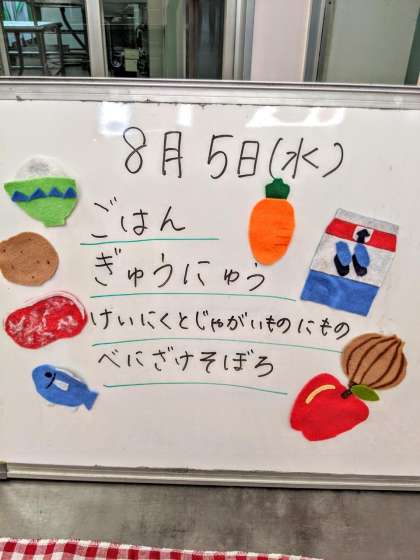 8月5日(水)
ごはん
ぎゅうにゅう
けいにくとじゃがいものにもの
べにざけそぼろ